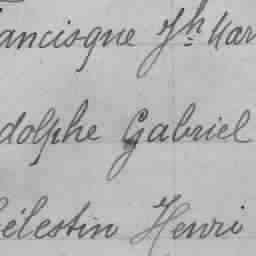 ancisque Jh Mar
dolphe Gabriel
élestin Henri